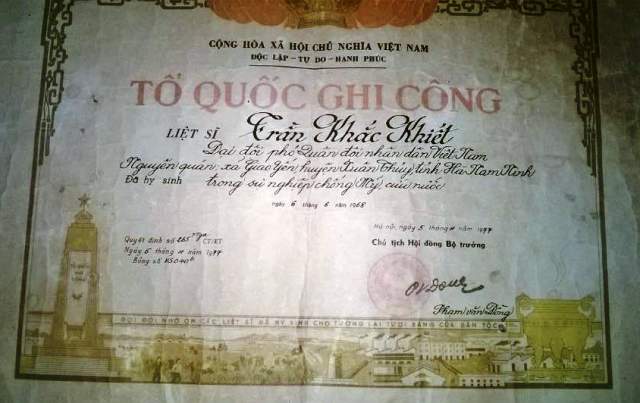 CỘNG HÒA XÃ HỘI CHỦ NGHĨA VIỆT NAM
ĐỘC LẬP - TỰ DO - HẠNH PHÚC
TỔ QUỐC GHI CÔNG
LIỆT SĨ Trần Khắc Khiết
Đại đội phó Quân đội nhân dân Việt Nam
Nguyên quán xã Giao Yến huyện Xuân Thủy tỉnh Hà Nam Ninh
Đã hy sinh trong sự nghiệp chống Mỹ, cứu nước
ngày 6 tháng 6 năm 1968
Quyết định số 265 CT/KT
Ngày 5 tháng năm 1977
Bằng số
Hà nội, ngày 5 tháng năm 1977
Chủ tịch Hội đồng Bộ trưởng
PVĐong
Phạm Văn Đồng
TỔ QUỐC GHI CÔNG
ĐỜI ĐỜI NHỚ ƠN CÁC LIỆT SĨ ĐÃ HY SINH CHO TƯƠNG LAI TƯƠI SÁNG CỦA DÂN TỘC